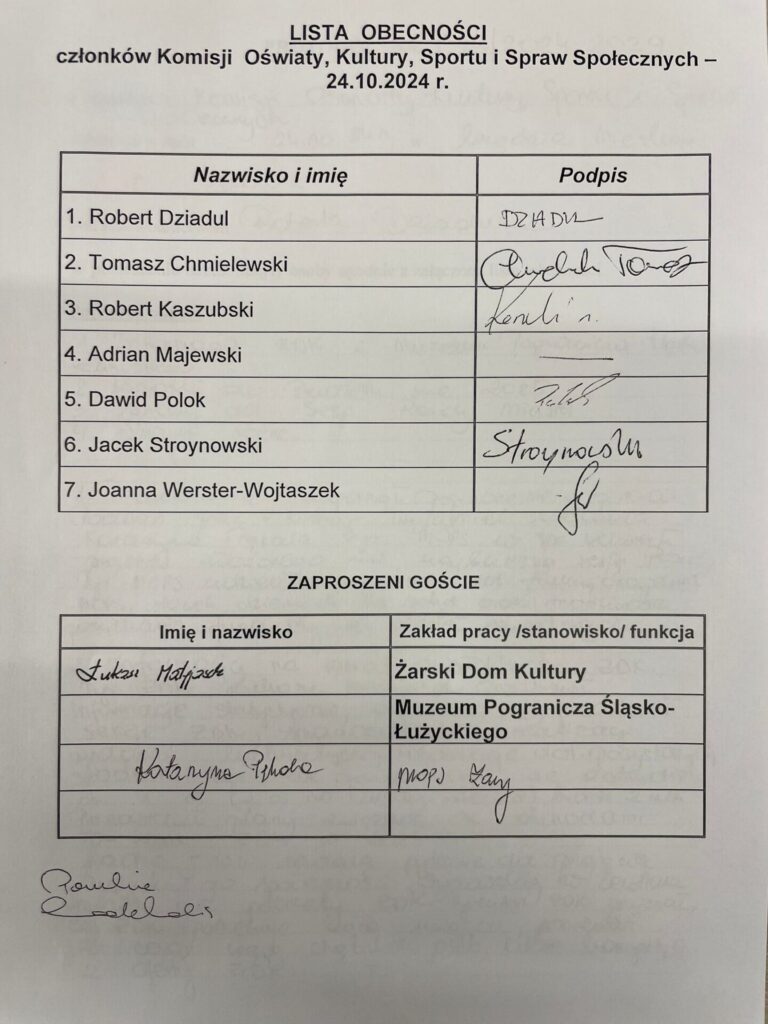 LISTA OBECNOŚCI
członków Komisji Oświaty, Kultury, Sportu i Spraw Społecznych –
24.10.2024 r.
Nazwisko i imię Podpis
1. Robert Dziadul DZIADUL
2. Tomasz Chmielewski Tomasz
3. Robert Kaszubski
4. Adrian Majewski —
5. Dawid Polok
6. Jacek Stroynowski Stroynowski
7. Joanna Werster-Wojtaszek
ZAPROSZENI GOŚCIE
Imię i nazwisko Zakład pracy /stanowisko/ funkcja
Łukasz Matyjasek Żarski Dom Kultury
Muzeum Pogranicza Śląsko-
Łużyckiego
Katarzyna MOPS Żary
Paulina